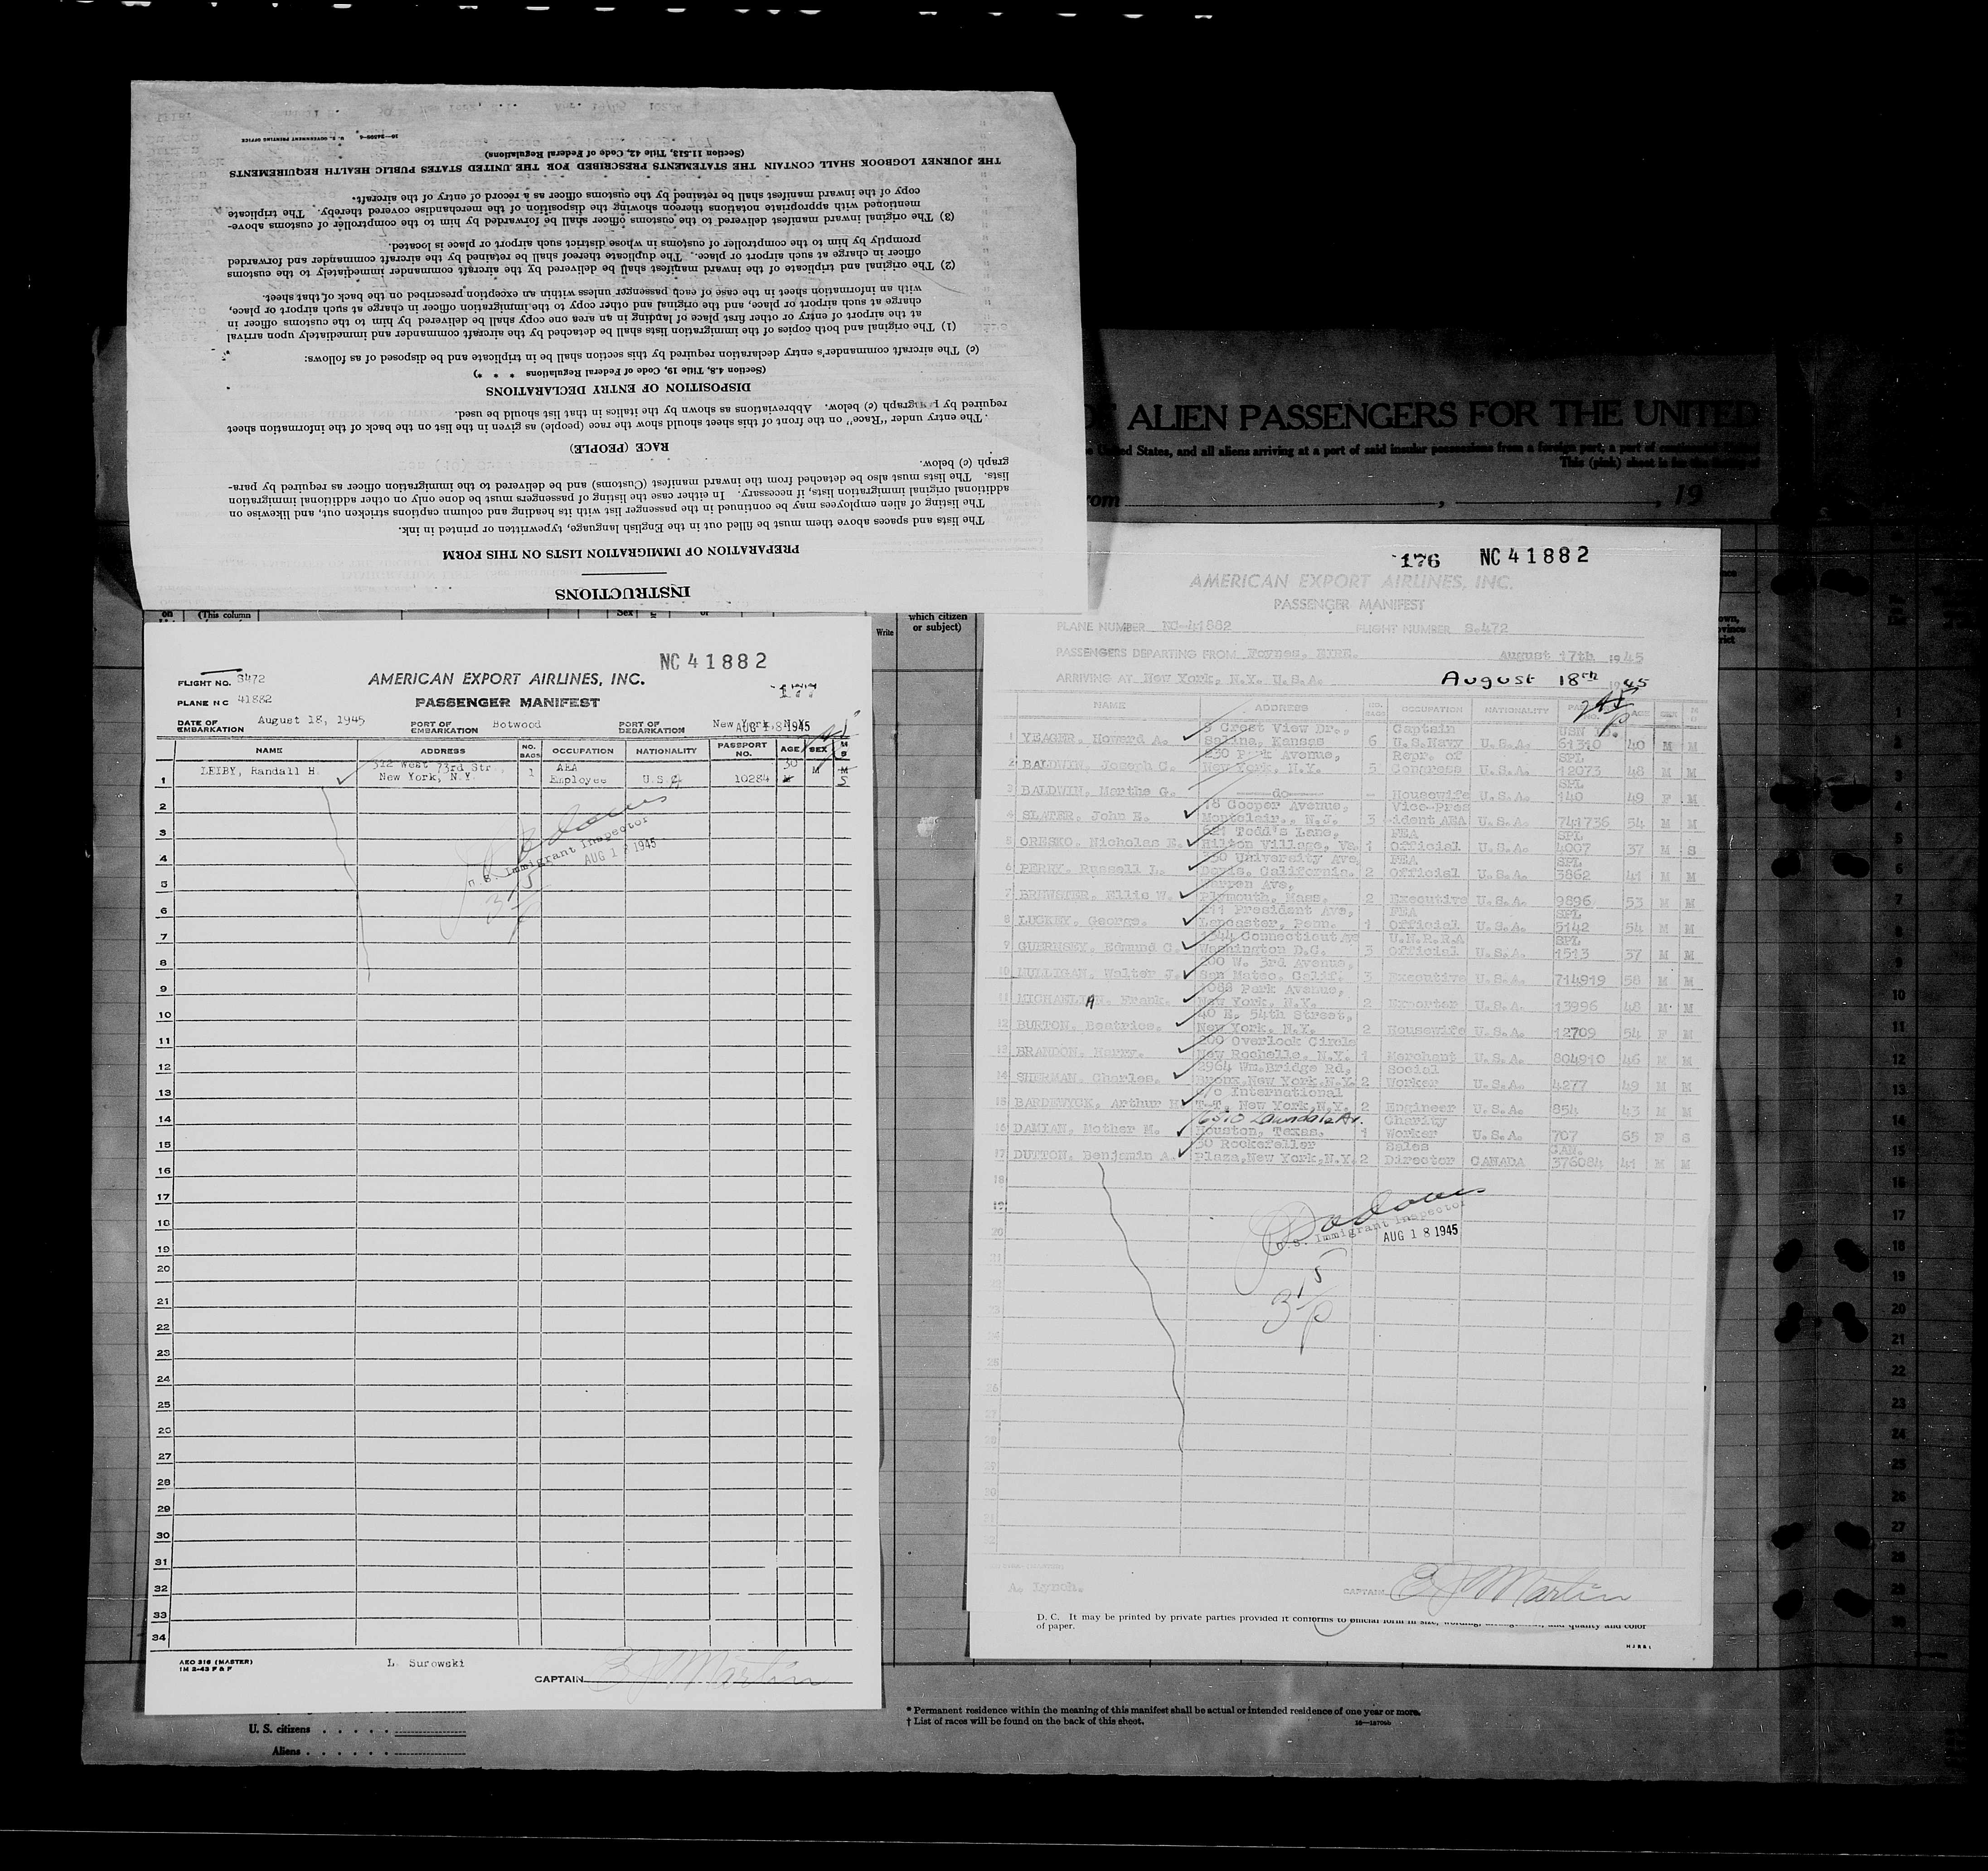 INSTRUCTIONS
PREPARATION OF IMMIGRATION LISTS ON THIS FORM
The lists and spaces above them must be filled out in the English language, typewritten or printed in ink.
The listing of alien employees may be continued in the passenger list with its heading and column captions stricken out, and likewise on
additional original immigration lists, if necessary. In either case the listing of passengers must be done only on other additional immigration
lists. The lists must also be detached from the inward manifest (Customs) and be delivered to the immigration officer as required by para-
graph (c) below.
RACE (PEOPLE)
The entry under "Race" on the front of this sheet should show the race (people) as given in the list on the back of the information sheet
required by paragraph (c) below. Abbreviations as shown by the italics in that list should be used.
DISPOSITION OF ENTRY DECLARATIONS
(Section 4.8, Title 19, Code of Federal Regulations * * *)
(c) The aircraft commander's entry declaration required by this section shall be in triplicate and be disposed of as follows:
(1) The original and both copies of the immigration lists shall be detached by the aircraft commander and immediately upon arrival
at the airport of entry or other first place of landing in an area one copy shall be delivered by him to the customs officer in
charge at such airport or place, and the original and other copy to the immigration officer in charge at such airport or place,
with an information sheet in the case of each passenger unless within an exception prescribed on the back of that sheet.
(2) The original and triplicate of the inward manifest shall be delivered by the aircraft commander immediately to the customs
officer in charge at such airport or place. The duplicate thereof shall be retained by the aircraft commander and forwarded
promptly by him to the comptroller of customs in whose district such airport or place is located.
(3) The original inward manifest delivered to the customs officer shall be forwarded by him to the comptroller of customs above-
mentioned with appropriate notations thereon showing the disposition of the merchandise covered thereby. The triplicate
copy of the inward manifest shall be retained by the customs officer as a record of entry of the aircraft.
THE JOURNEY LOGBOOK SHALL CONTAIN THE STATEMENTS PRESCRIBED FOR THE UNITED STATES PUBLIC HEALTH REQUIREMENTS
(Section 11.513, Title 42, Code of Federal Regulations)
U. S. GOVERNMENT PRINTING OFFICE
OF ALIEN PASSENGERS FOR THE UNITED
United States, and all aliens arriving at a port of said insular possessions from a foreign port, a part of
This (pink) sheet is for the
from , , 19
(This column
Sex
Write
which citizen
or subject)
NC 41882
FLIGHT NO. S472
AMERICAN EXPORT AIRLINES, INC.
177
PLANE NC 41882
PASSENGER MANIFEST
DATE OF EMBARKATION August 18, 1945 PORT OF EMBARKATION Botwood PORT OF DEBARKATION New York, N.Y.
AUG 18 1945
NAME ADDRESS NO. BAGS OCCUPATION NATIONALITY PASSPORT NO. AGE SEX M S
1 LEIBY, Randall H. 312 West 73rd Str., New York, N.Y. 1 AEA Employee U.S.A 10284 30 M S
2
3
4
5
6
7
8
9
10
11
12
13
14
15
16
17
18
19
20
21
22
23
24
25
26
27
28
29
30
31
32
33
34
U.S. Immigrant Inspector
AUG 1 1945
AEO 316 (MASTER)
1M 2-43 P & F
L. Surowski
CAPTAIN E J Martin
176 NC 41882
AMERICAN EXPORT AIRLINES, INC.
PASSENGER MANIFEST
PLANE NUMBER NC-41882 FLIGHT NUMBER S.472
PASSENGERS DEPARTING FROM Foynes, EIRE. August 17th 1945
ARRIVING AT New York, N.Y. U.S.A. August 18th 1945
NAME ADDRESS NO. BAGS OCCUPATION NATIONALITY AGE SEX M
1 YEAGER, Howard A. 9 Crest View Dr., Salina, Kansas 6 Captain U.S.Navy U.S.A. USN 61310 40 M M
2 BALDWIN, Joseph C. 230 Park Avenue, New York, N.Y. 5 Repr. of Congress U.S.A. SPL 12073 48 M M
3 BALDWIN, Marthe G. ----do---- - Housewife U.S.A. SPL 140 49 F M
4 SLATER, John E. 18 Cooper Avenue, Montclair., N.J. 3 Vice-Pres ident AEA U.S.A. 741736 54 M M
5 ORESKO, Nicholas E. 621 Todd's Lane, Hilton Village, Va. 1 FEA Official U.S.A. SPL 4007 37 M S
6 PERRY, Russell L. University Ave, Davis, California. 2 FEA Official U.S.A. SPL 3862 41 M M
7 BREWSTER, Ellis W. Warren Ave, Plymouth, Mass. 2 Executive U.S.A. 9896 53 M M
8 LUCKEY, George. 211 President Ave, Lancaster, Penn. 1 FEA Official U.S.A. SPL 5142 54 M M
9 GUERNSEY, Edmund C. 1344 Connecticut Ave Washington D.C. 3 U.N.R.R.A Official U.S.A. SPL 1513 37 M M
10 MULLIGAN, Walter J. 200 W. 3rd Avenue, San Mateo, Calif. 3 Executive U.S.A. 714919 58 M M
11 MICHAELIAN, Frank. 1088 Park Avenue, New York, N.Y. 2 Exporter U.S.A. 13996 48 M M
12 BURTON, Beatrice. 40 E. 54th Street, New York, N.Y. 2 Housewife U.S.A. 12709 54 F M
13 BRANDON, Harry. 200 Overlook Circle New Rochelle, N.Y. 1 Merchant U.S.A. 804910 46 M M
14 SHERMAN, Charles. 2964 Wm.Bridge Rd, Bronx,New York,N.Y. 2 Social Worker U.S.A. 4277 49 M M
15 BARDEWYCK, Arthur H. c/o International T-T, New York,N.Y. 2 Engineer U.S.A. 854 43 M M
16 DAMIAN, Mother M. 6510 Lawndale Av. Houston, Texas. 1 Charity Worker U.S.A. 707 65 F S
17 DUTTON, Benjamin A. 30 Rockefeller Plaza,New York,N.Y. 2 Sales Director CANADA CAN. 376084 41 M M
U.S. Immigrant Inspector
AUG 18 1945
A. Lynch.
CAPTAIN E J Martin
D. C. It may be printed by private parties provided it conforms to official form in size, wording, arrangement, and quality and color
of paper.
U. S. citizens
Aliens
* Permanent residence within the meaning of this manifest shall be actual or intended residence of one year or more.
† List of races will be found on the back of this sheet.